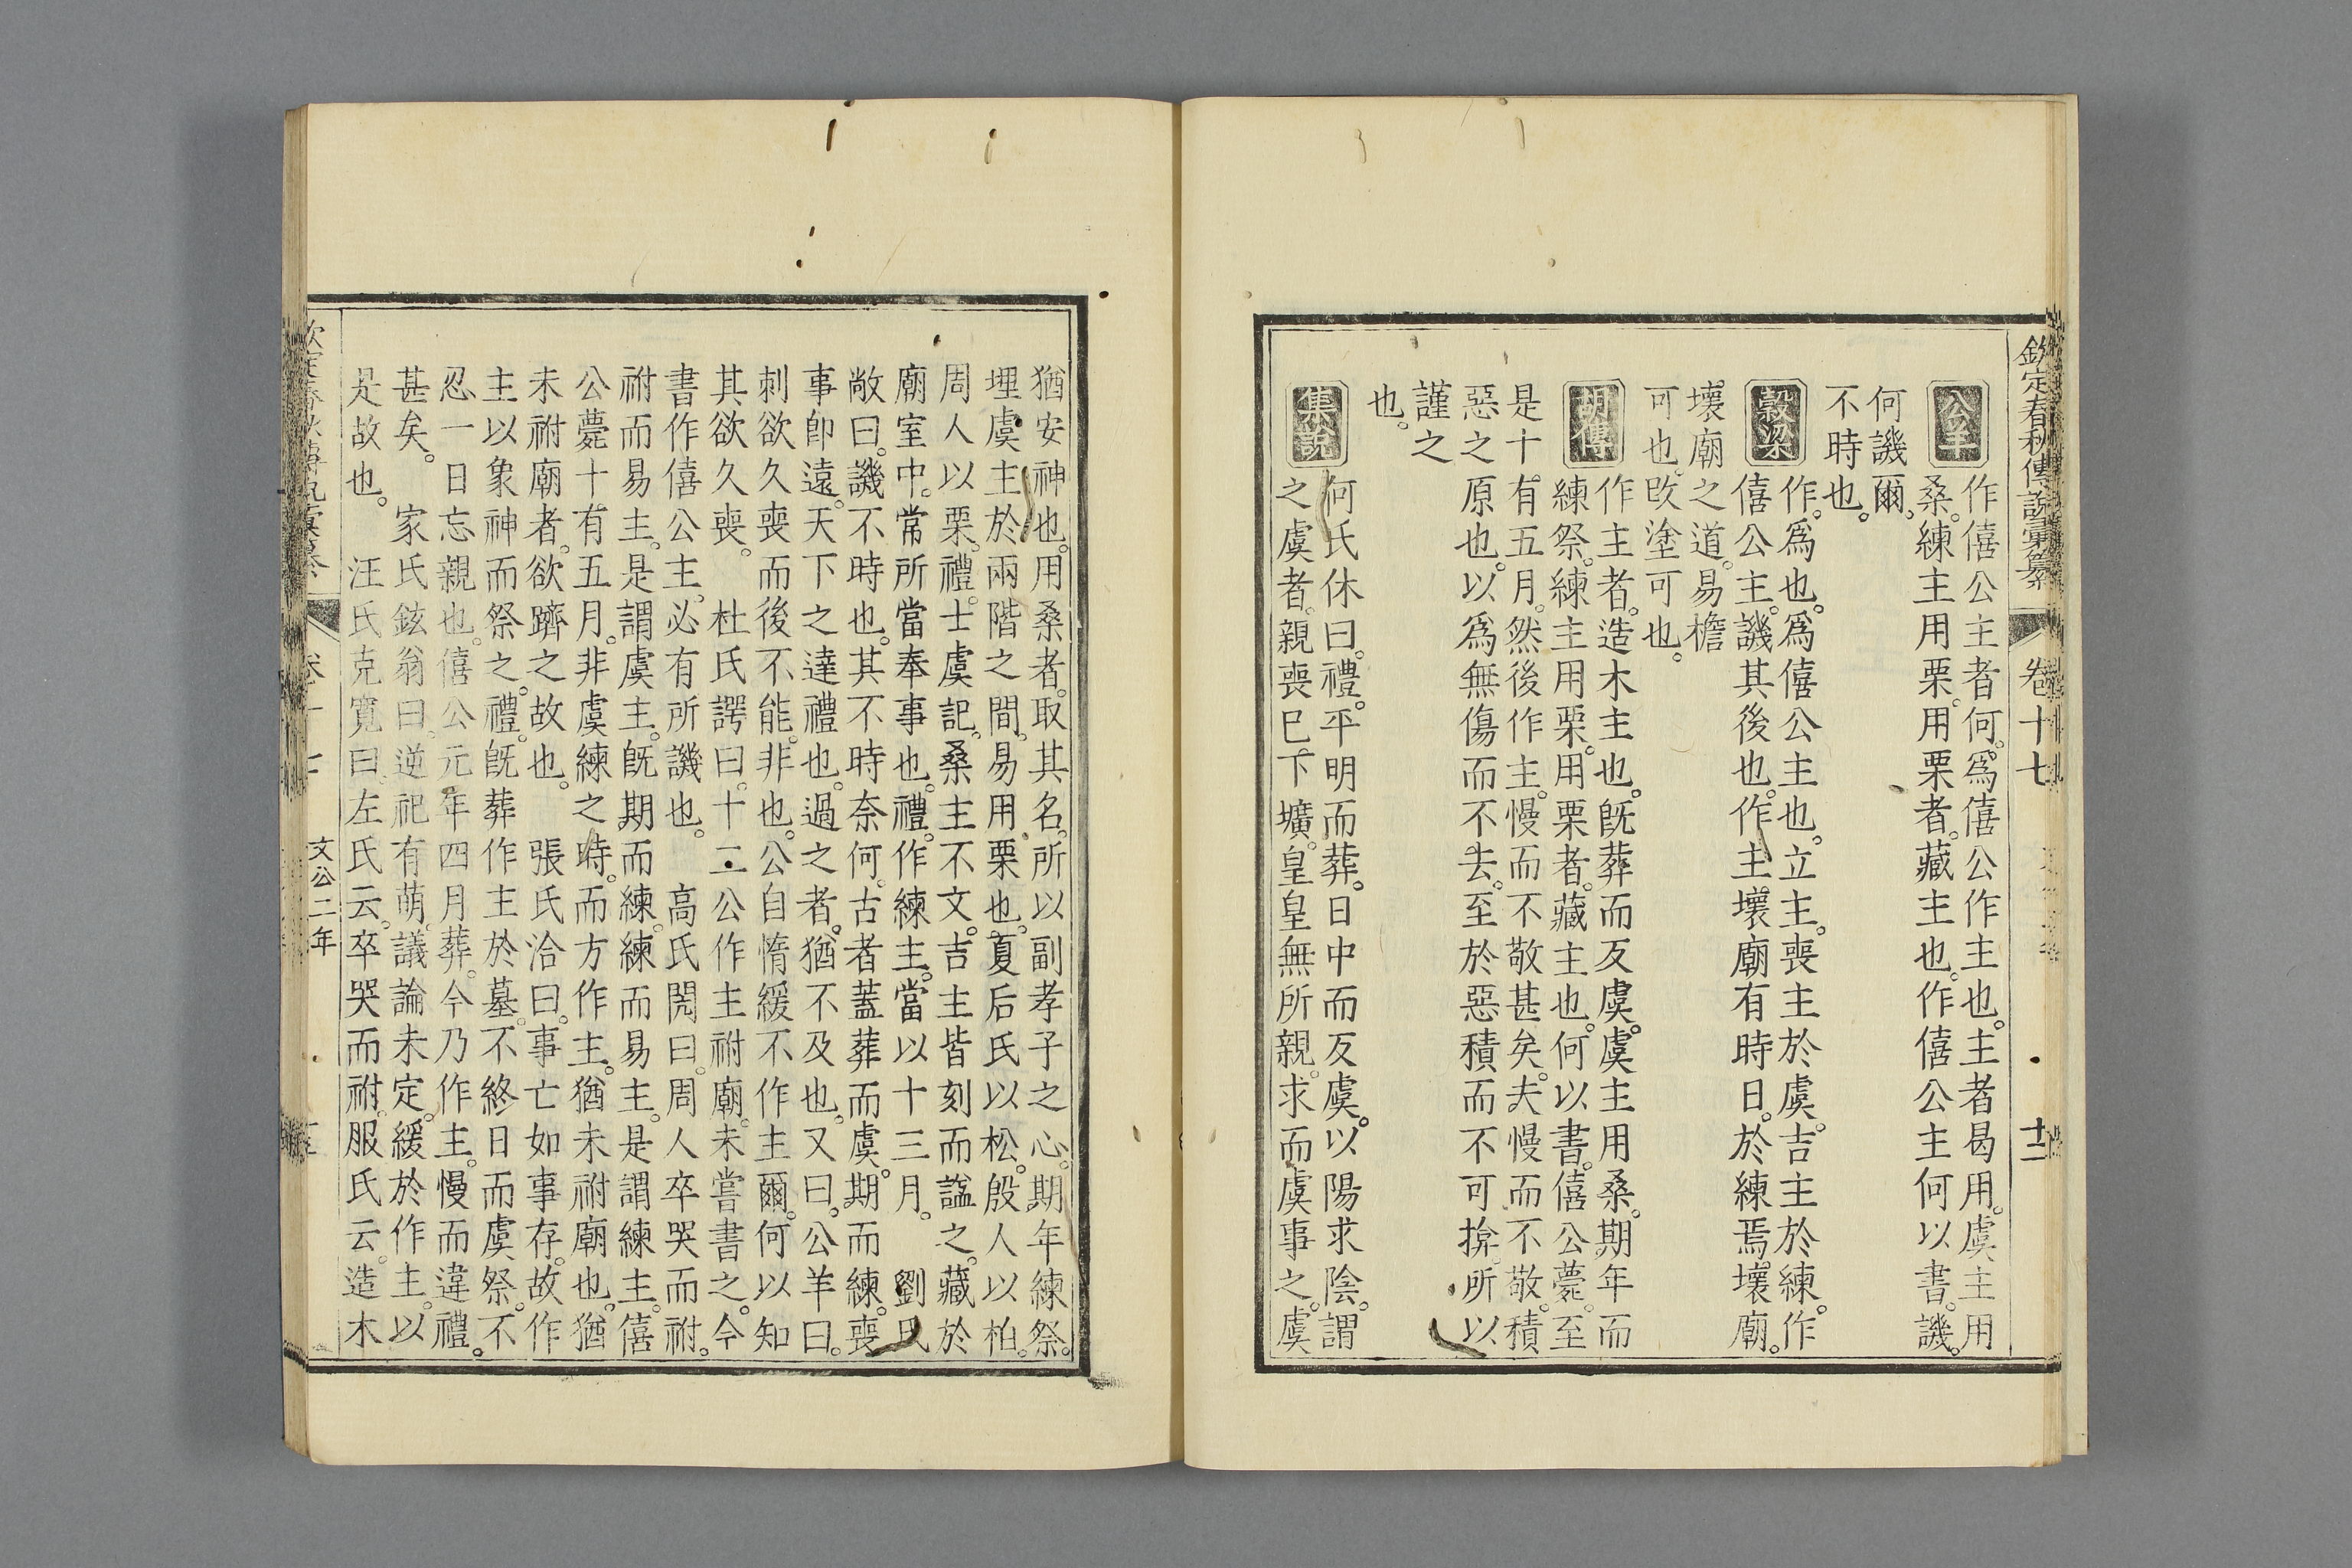 欽定春秋傳說彙纂 卷十七 十二
公羊
作僖公主者何。爲僖公作主也。主者曷用。虞主用
桑。練主用栗。用栗者。藏主也。作僖公主何以書。譏。
何譏爾。
不時也。
穀梁
作。爲也。爲僖公主也。立主。喪主於虞。吉主於練。作
僖公主。譏其後也。作主壞廟有時日。於練焉壞廟。
壞廟之道。易檐
可也。改塗可也。
胡傳
作主者。造木主也。旣葬而反虞。虞主用桑。期年而
練祭。練主用栗。用栗者。藏主也。何以書。僖公薨。至
是十有五月。然後作主。慢而不敬甚矣。夫慢而不敬。積
惡之原也。以爲無傷而不去。至於惡積而不可揜。所以
謹之
也。
集說
何氏休曰。禮。平明而葬。日中而反虞。以陽求陰。謂
之虞者。親喪已下壙。皇皇無所親。求而虞事之。虞
猶安神也。用桑者。取其名。所以副孝子之心。期年練祭。
埋虞主於兩階之間。易用栗也。夏后氏以松。殷人以柏。
周人以栗。禮。士虞記。桑主不文。吉主皆刻而諡之。藏於
廟室中。常所當奉事也。禮。作練主。當以十三月。 劉氏
敞曰。譏不時也。其不時奈何。古者蓋葬而虞。期而練。喪
事卽遠。天下之達禮也。過之者。猶不及也。又曰。公羊曰。
刺欲久喪而後不能。非也。公自惰緩不作主爾。何以知
其欲久喪。 杜氏諤曰。十二公作主祔廟。未嘗書之。今
書作僖公主。必有所譏也。 高氏閌曰。周人卒哭而祔。
祔而易主。是謂虞主。旣期而練。練而易主。是謂練主。僖
公薨十有五月。非虞練之時。而方作主。猶未祔廟也。猶
未祔廟者。欲躋之故也。 張氏洽曰。事亡如事存。故作
主以象神而祭之。禮。旣葬作主於墓。不終日而虞祭。不
忍一日忘親也。僖公元年四月葬。今乃作主。慢而違禮。
甚矣。 家氏鉉翁曰。逆祀有萌。議論未定。緩於作主。以
是故也。 汪氏克寬曰。左氏云。卒哭而祔。服氏云。造木
文公二年